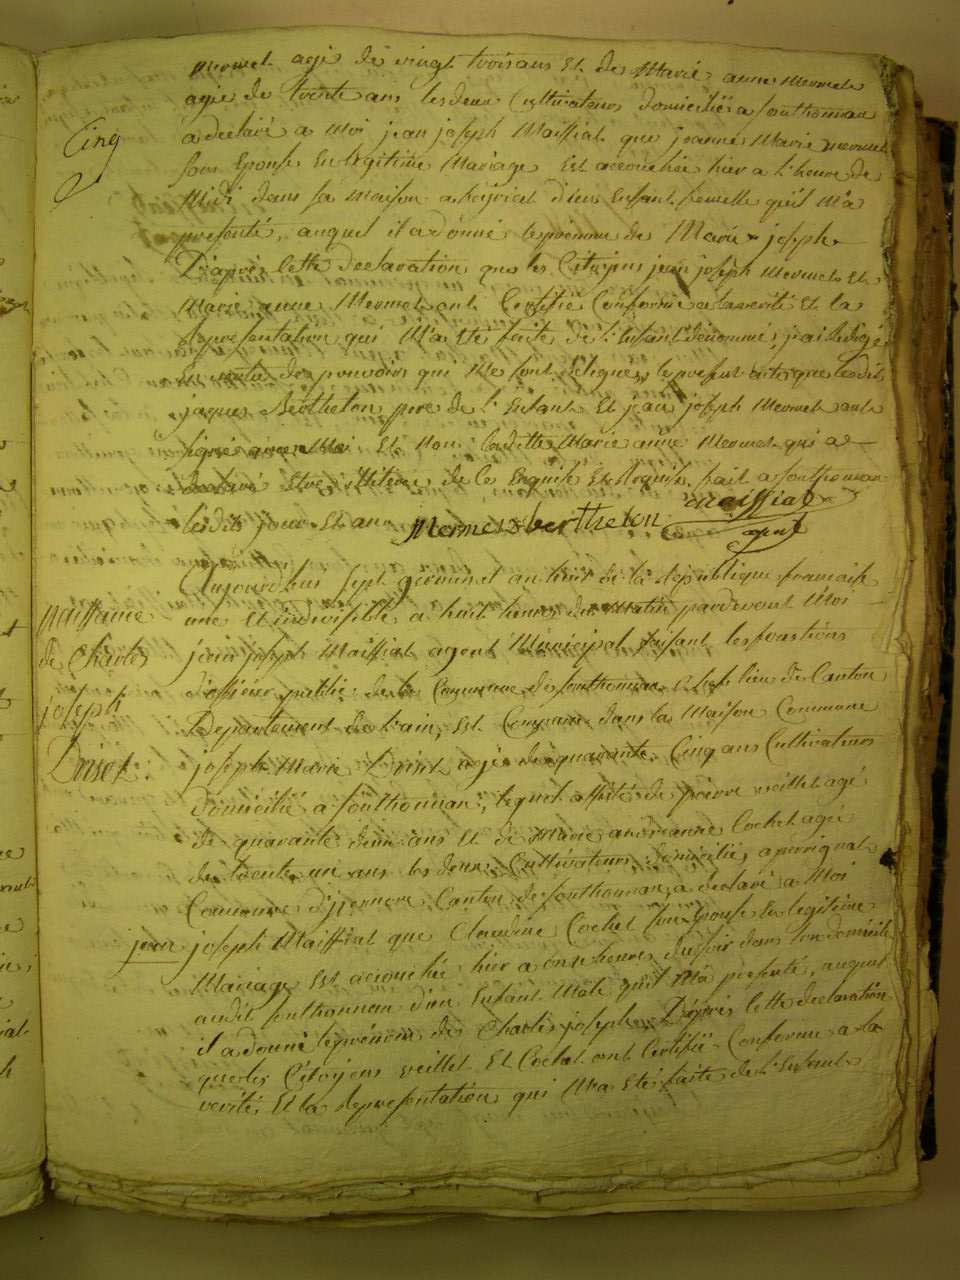 mermet agé de vingt trois ans Et de Marie anne Mermet
agée de trente ans les deux Cultivateurs domiciliés a Sonthonnan
Cinq
a declaré a Moi jean joseph Maissiat que jeanne Marie mermet
son Epouse En legitime Mariage Est accouchée hier a l'heure de
Midi dans sa Maison a heyriat d'un Enfant femelle qu'il M'a
presenté, auquel il a donné le prénom de Marie joseph
D'après Cette declaration que les Citoyens jean joseph Mermet Et
Marie anne Mermet ont Certifié Conforme a la verité Et la
Representation qui M'a été faite de l'Enfant dénommé, j'ai Redigé
En vertu des pouvoirs qui Me sont délégués, le present acte que ledit
jaques Bertheton pere de l'Enfant Et jean joseph Mermet ont
signé avec Moi Et Non ladite Marie anne Mermet qui a
declaré Etre illiterée de ce Enquise Et Requise. fait a Sonthonnan
lesdits jour Et an Mermet bertheton maissiat
agent
Aujourd'hui sept germinal an huit de la Republique francaise
Naissance
une Et indivisible, a huit heures du Matin pardevant Moi
de Charles
jean joseph Maissiat agent Municipal faisant les fonctions
d'officier public de la Commune de Sonthonnan Chef lieu de Canton
joseph
Departement de l'ain, Est Comparu dans la Maison Commune
Druet.
joseph Marie Druet agé de quarante Cinq ans Cultivateur
Domicilié a Sonthonnan, lequel assisté de pierre veillet agé
de quarante deux ans Et de Marie andréanne Cochet agée
de trente un ans les deux Cultivateurs domiciliés a perrignat
Commune d'izernore Canton de Sonthonnan, a declaré a Moi
jean joseph Maissiat que Claudine Cochet son Epouse En legitime
Mariage Est accouchée hier a onze heures du soir dans son domicile
audit Sonthonnan d'un Enfant Male qu'il M'a presenté, auquel
il a donné le prénom de Charles joseph. D'après Cette declaration
que les Citoyens veillet Et Cochet ont Certifié Conforme a la
verité, Et la Representation qui M'a été faite de l'Enfant